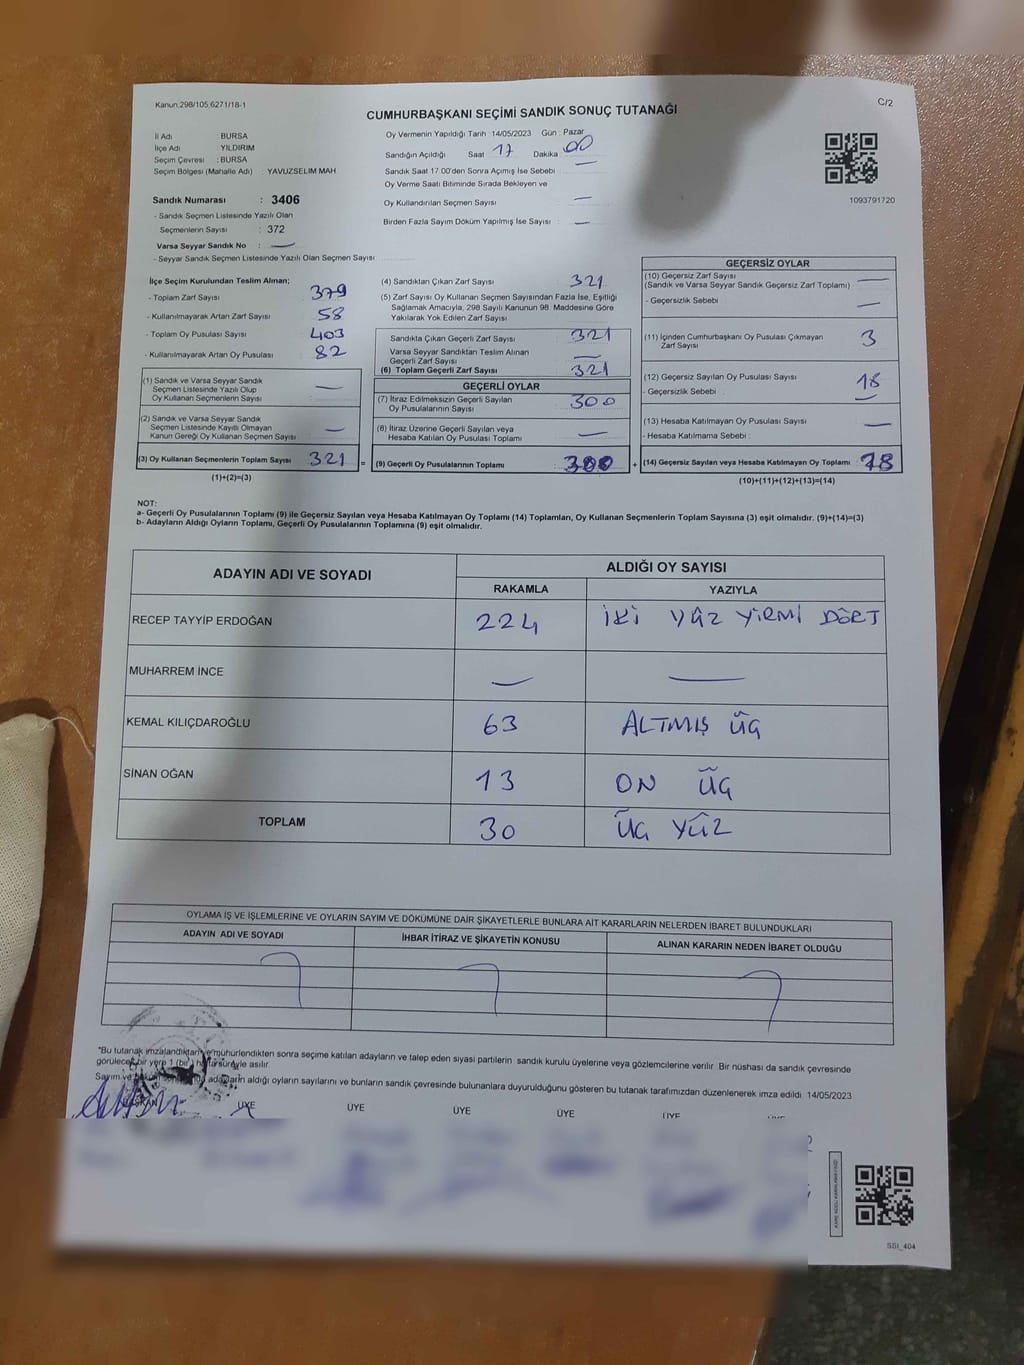 Kanun,298/105,6271/18-1
C/2
CUMHURBAŞKANI SEÇİMİ SANDIK SONUÇ TUTANAĞI
İl Adı BURSA
İlçe Adı YILDIRIM
Seçim Çevresi : BURSA
Seçim Bölgesi (Mahalle Adı) : YAVUZSELIM MAH
Sandık Numarası : 3406
- Sandık Seçmen Listesinde Yazılı Olan
Seçmenlerin Sayısı : 372
Varsa Seyyar Sandık No : —
- Seyyar Sandık Seçmen Listesinde Yazılı Olan Seçmen Sayısı
Oy Vermenin Yapıldığı Tarih : 14/05/2023 Gün : Pazar
Sandığın Açıldığı Saat 17 Dakika 00
Sandık Saat 17.00'den Sonra Açımış İse Sebebi —
Oy Verme Saati Bitiminde Sırada Bekleyen ve
Oy Kullandırılan Seçmen Sayısı —
Birden Fazla Sayım Döküm Yapılmış İse Sayısı : —
1093791720
İlçe Seçim Kurulundan Teslim Alınan;
- Toplam Zarf Sayısı 379
- Kullanılmayarak Artan Zarf Sayısı 58
- Toplam Oy Pusulası Sayısı 403
- Kullanılmayarak Artan Oy Pusulası 82
(1) Sandık ve Varsa Seyyar Sandık
Seçmen Listesinde Yazılı Olup
Oy Kullanan Seçmenlerin Sayısı —
(2) Sandık ve Varsa Seyyar Sandık
Seçmen Listesinde Kayıtlı Olmayan
Kanun Gereği Oy Kullanan Seçmen Sayısı —
(3) Oy Kullanan Seçmenlerin Toplam Sayısı 321 =
(1)+(2)=(3)
(4) Sandıktan Çıkan Zarf Sayısı 321
(5) Zarf Sayısı Oy Kullanan Seçmen Sayısından Fazla İse, Eşitliği
Sağlamak Amacıyla, 298 Sayılı Kanunun 98. Maddesine Göre
Yakılarak Yok Edilen Zarf Sayısı
Sandıkta Çıkan Geçerli Zarf Sayısı 321
Varsa Seyyar Sandıktan Teslim Alınan
Geçerli Zarf Sayısı —
(6) Toplam Geçerli Zarf Sayısı 321
GEÇERLİ OYLAR
(7) İtiraz Edilmeksizin Geçerli Sayılan
Oy Pusulalarının Sayısı 300
(8) İtiraz Üzerine Geçerli Sayılan veya
Hesaba Katılan Oy Pusulası Toplamı —
(9) Geçerli Oy Pusulalarının Toplamı 300 +
GEÇERSİZ OYLAR
(10) Geçersiz Zarf Sayısı
(Sandık ve Varsa Seyyar Sandık Geçersiz Zarf Toplamı) —
- Geçersizlik Sebebi —
(11) İçinden Cumhurbaşkanı Oy Pusulası Çıkmayan
Zarf Sayısı 3
(12) Geçersiz Sayılan Oy Pusulası Sayısı 18
- Geçersizlik Sebebi : —
(13) Hesaba Katılmayan Oy Pusulası Sayısı —
- Hesaba Katılmama Sebebi :
(14) Geçersiz Sayılan veya Hesaba Katılmayan Oy Toplamı
(10)+(11)+(12)+(13)=(14)
NOT:
a- Geçerli Oy Pusulalarının Toplamı (9) ile Geçersiz Sayılan veya Hesaba Katılmayan Oy Toplamı (14) Toplamları, Oy Kullanan Seçmenlerin Toplam Sayısına (3) eşit olmalıdır. (9)+(14)=(3)
b- Adayların Aldığı Oyların Toplamı, Geçerli Oy Pusulalarının Toplamına (9) eşit olmalıdır.
ADAYIN ADI VE SOYADI ALDIĞI OY SAYISI
RAKAMLA YAZIYLA
RECEP TAYYİP ERDOĞAN 224 İKİ YÜZ YİRMİ DÖRT
MUHARREM İNCE — —
KEMAL KILIÇDAROĞLU 63 ALTMIŞ ÜÇ
SİNAN OĞAN 13 ON ÜÇ
TOPLAM 30 ÜÇ YÜZ
OYLAMA İŞ VE İŞLEMLERİNE VE OYLARIN SAYIM VE DÖKÜMÜNE DAİR ŞİKAYETLERLE BUNLARA AİT KARARLARIN NELERDEN İBARET BULUNDUKLARI
ADAYIN ADI VE SOYADI İHBAR İTİRAZ VE ŞİKAYETİN KONUSU ALINAN KARARIN NEDEN İBARET OLDUĞU
*Bu tutanak imzalandıktan ve mühürlendikten sonra seçime katılan adayların ve talep eden siyasi partilerin sandık kurulu üyelerine veya gözlemcilerine verilir. Bir nüshası da sandık çevresinde
görülecek bir yere 1 (bir) hafta süreyle asılır.
Sayım ve adayların aldığı oyların sayılarını ve bunların sandık çevresinde bulunanlara duyurulduğunu gösteren bu tutanak tarafımızdan düzenlenerek imza edildi. 14/05/2023
BAŞKAN ÜYE ÜYE ÜYE ÜYE ÜYE
SSI_404